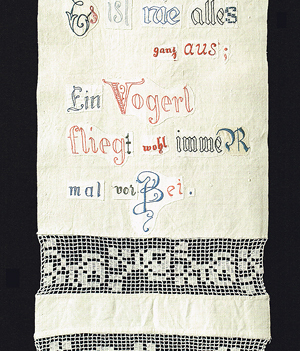 Es ist nie alles
ganz aus;
Ein Vogerl
fliegt wohl immeR
mal vorBei.